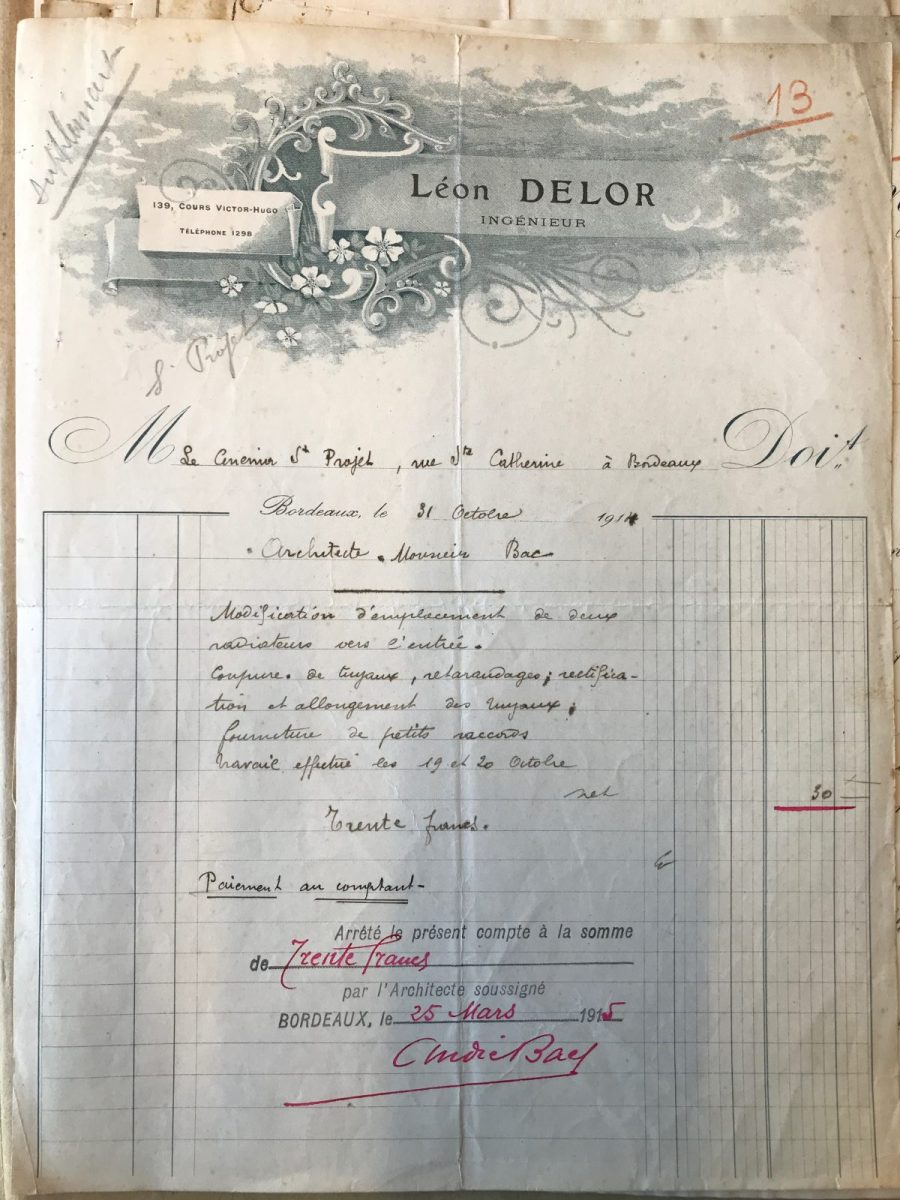 supplément
13
Léon DELOR
INGÉNIEUR
139, COURS VICTOR-HUGO
TÉLÉPHONE 1298
St Projet
M Le Cinéma St Projet, rue Ste Catherine à Bordeaux Doit
Bordeaux, le 31 Octobre 1914
Architecte. Monsieur Bac
Modification d'emplacement de deux
radiateurs vers l'entrée.
Coupure de tuyaux, retaraudages; rectifica-
tion et allongement des tuyaux;
fourniture de petits raccords
travail effectué les 19 et 20 Octobre
net 30
Trente francs.
Paiement au comptant-
Arrêté le présent compte à la somme
de Trente francs
par l'Architecte soussigné
BORDEAUX, le 25 Mars 1915
André Bac